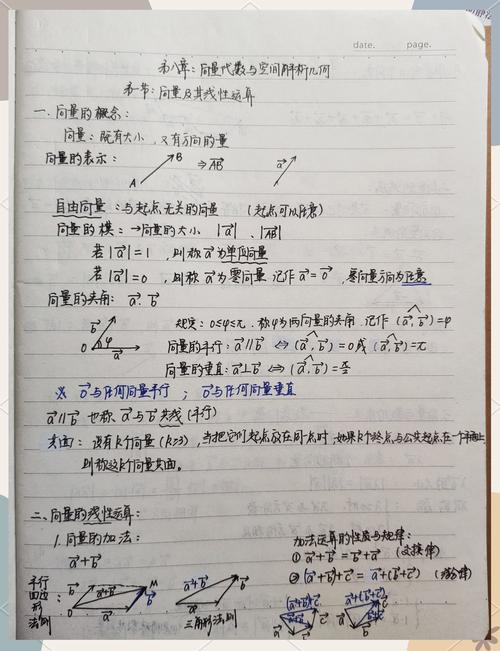 date. page.
第八章:向量代数与空间解析几何
第一节:向量及其线性运算
一、向量的概念:
向量:既有大小,又有方向的量
向量的表示: A B ⇒ AB→ a→
自由向量:与起点无关的向量 (起点可以任意)
向量的模:→向量的大小 |a→|、|AB→|
若|a→|=1,则称a→为单位向量
若|a→|=0,则称a→为零向量 记作a→=0→,零向量方向为任意
向量的夹角:a→、b→
规定:0≤φ≤π,称φ为两向量的夹角,记作(a→,b→)=φ
0 φ a→ b→ 向量的平行:a→∥b→ ⇔ (a→,b→)=0或(a→,b→)=π
向量的垂直:a→⊥b→ ⇔ (a→,b→)=π/2
※ 0→与任何向量平行;0→与任何向量垂直
a→∥b→ 也称a→与b→共线(平行)
共面:设有k个向量(k≥3),当把它们起点放在同一点时,如果k个终点与公共起点在一个平面上,
则称这k个向量共面。
二、向量的线性运算:
1.向量的加法: 加法运算的性质与规律:
a→+b→ ① a→+b→=b→+a→ (交换律)
② (a→+b→)+c→=a→+(b→+c→) (结合律)
平行四边形法则 0 a→ b→ a→+b→ M b→
三角形法则 a→ b→ a→+b→
(a→+b→)+c→ a→+(b→+c→)